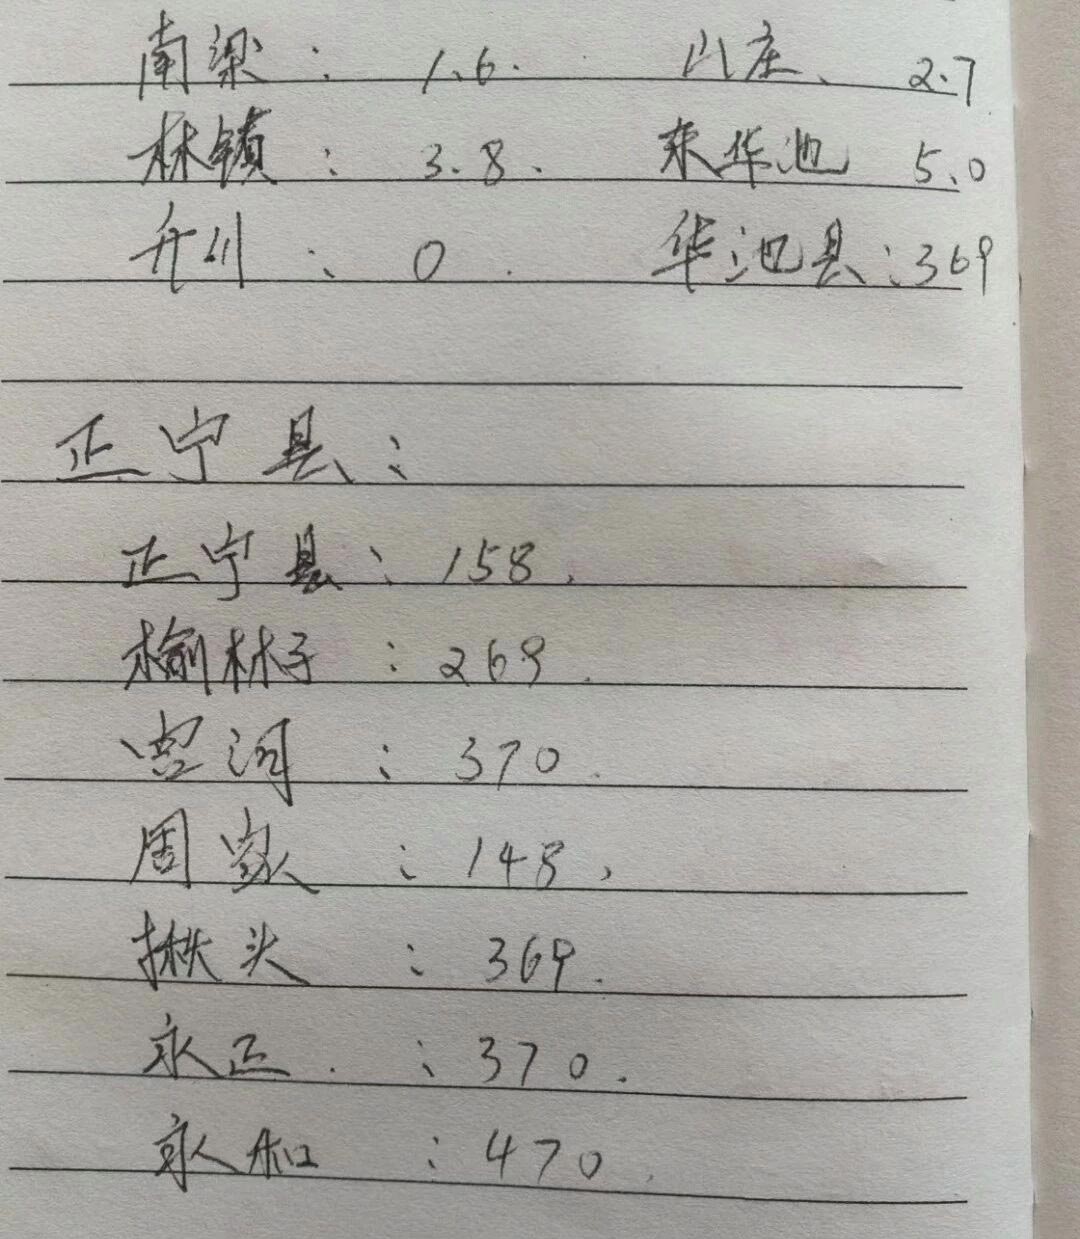 南梁：1.6. 山庄、2.7
林镇：3.8. 东华池 5.0
乔川：0. 华池县：369
正宁县：
正宁县：158.
榆林子：269.
宫河：370.
周家：148,
揪头：369.
永正.：370.
永和：470.